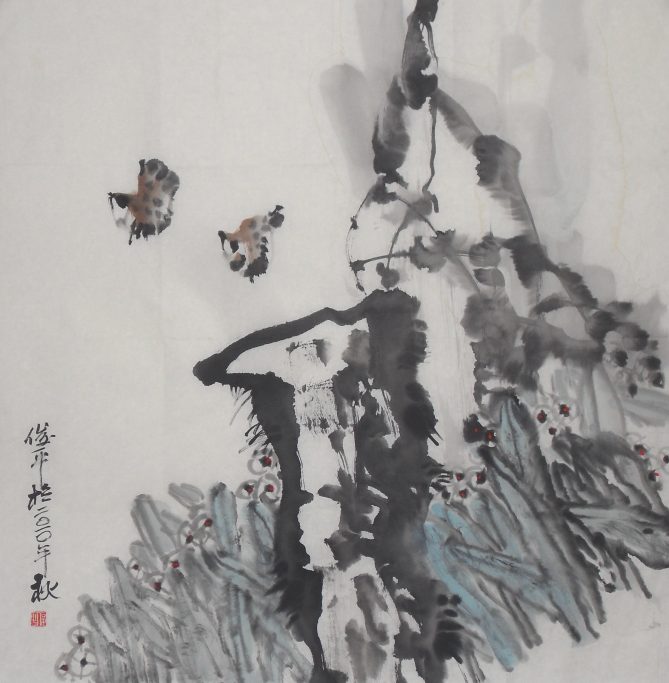 俊平於二〇一〇年秋